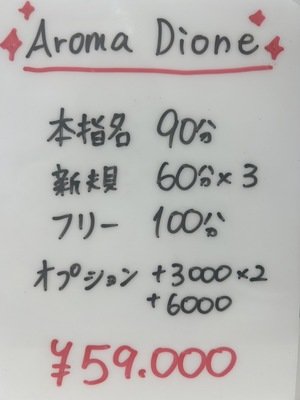 Aroma Dione
本指名 90分
新規 60分×3
フリー 100分
オプション +3000×2
+6000
¥59.000